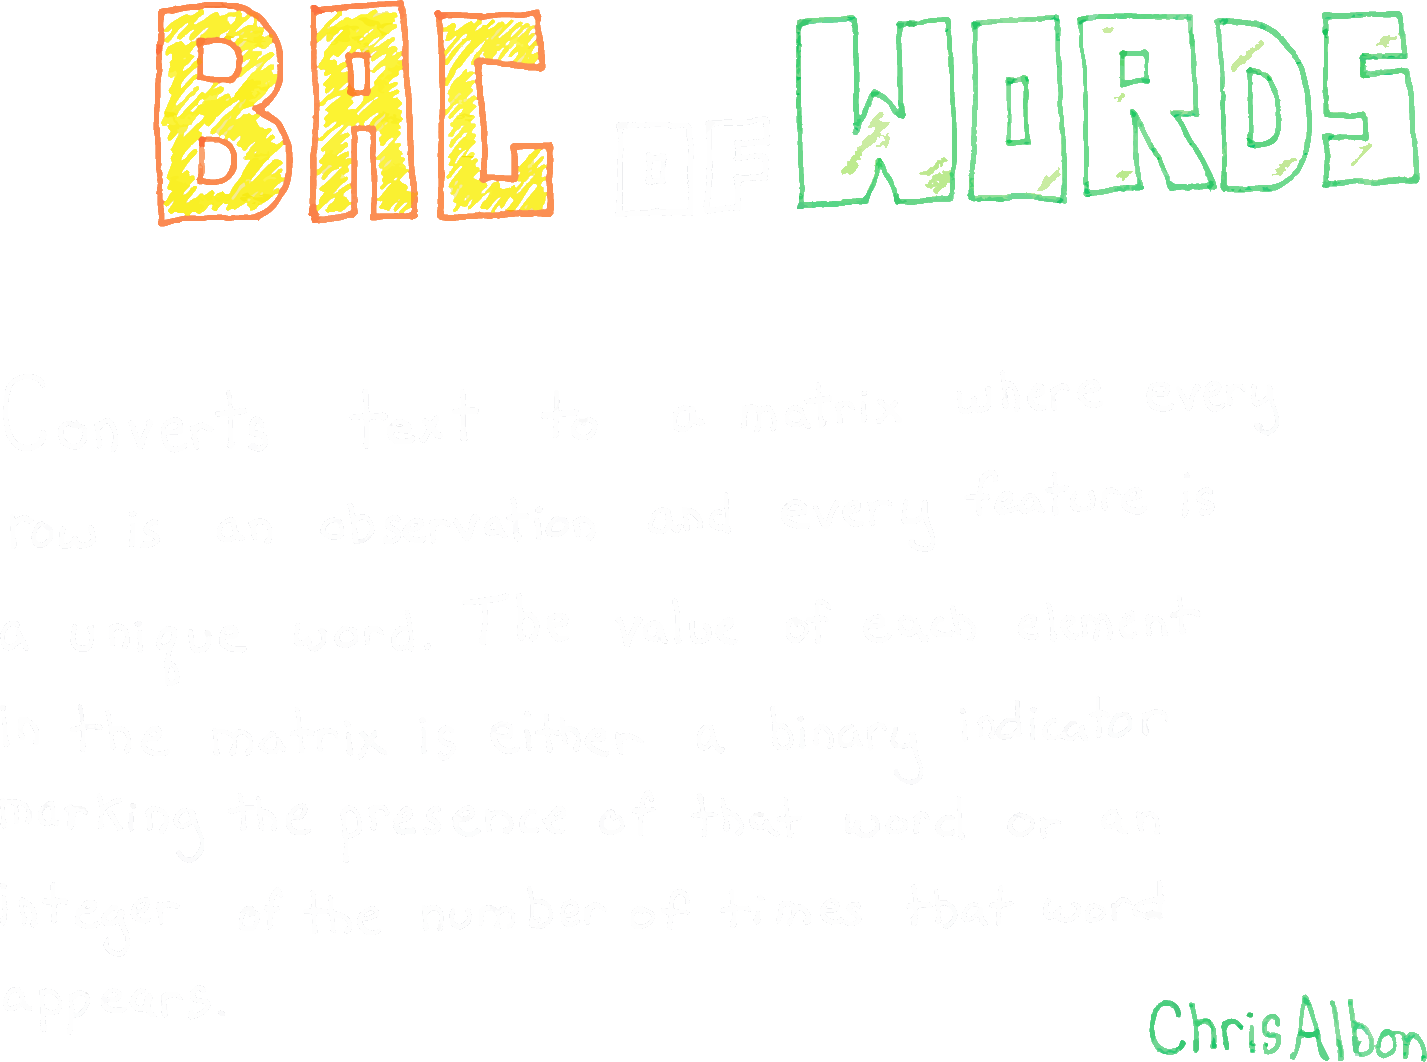 BAG OF WORDS
Converts text to a matrix where every
row is an observation and every feature is
a unique word. The value of each element
in the matrix is either a binary indicator
marking the presence of that word or an
integer of the number of times that word
appears.
Chris Albon